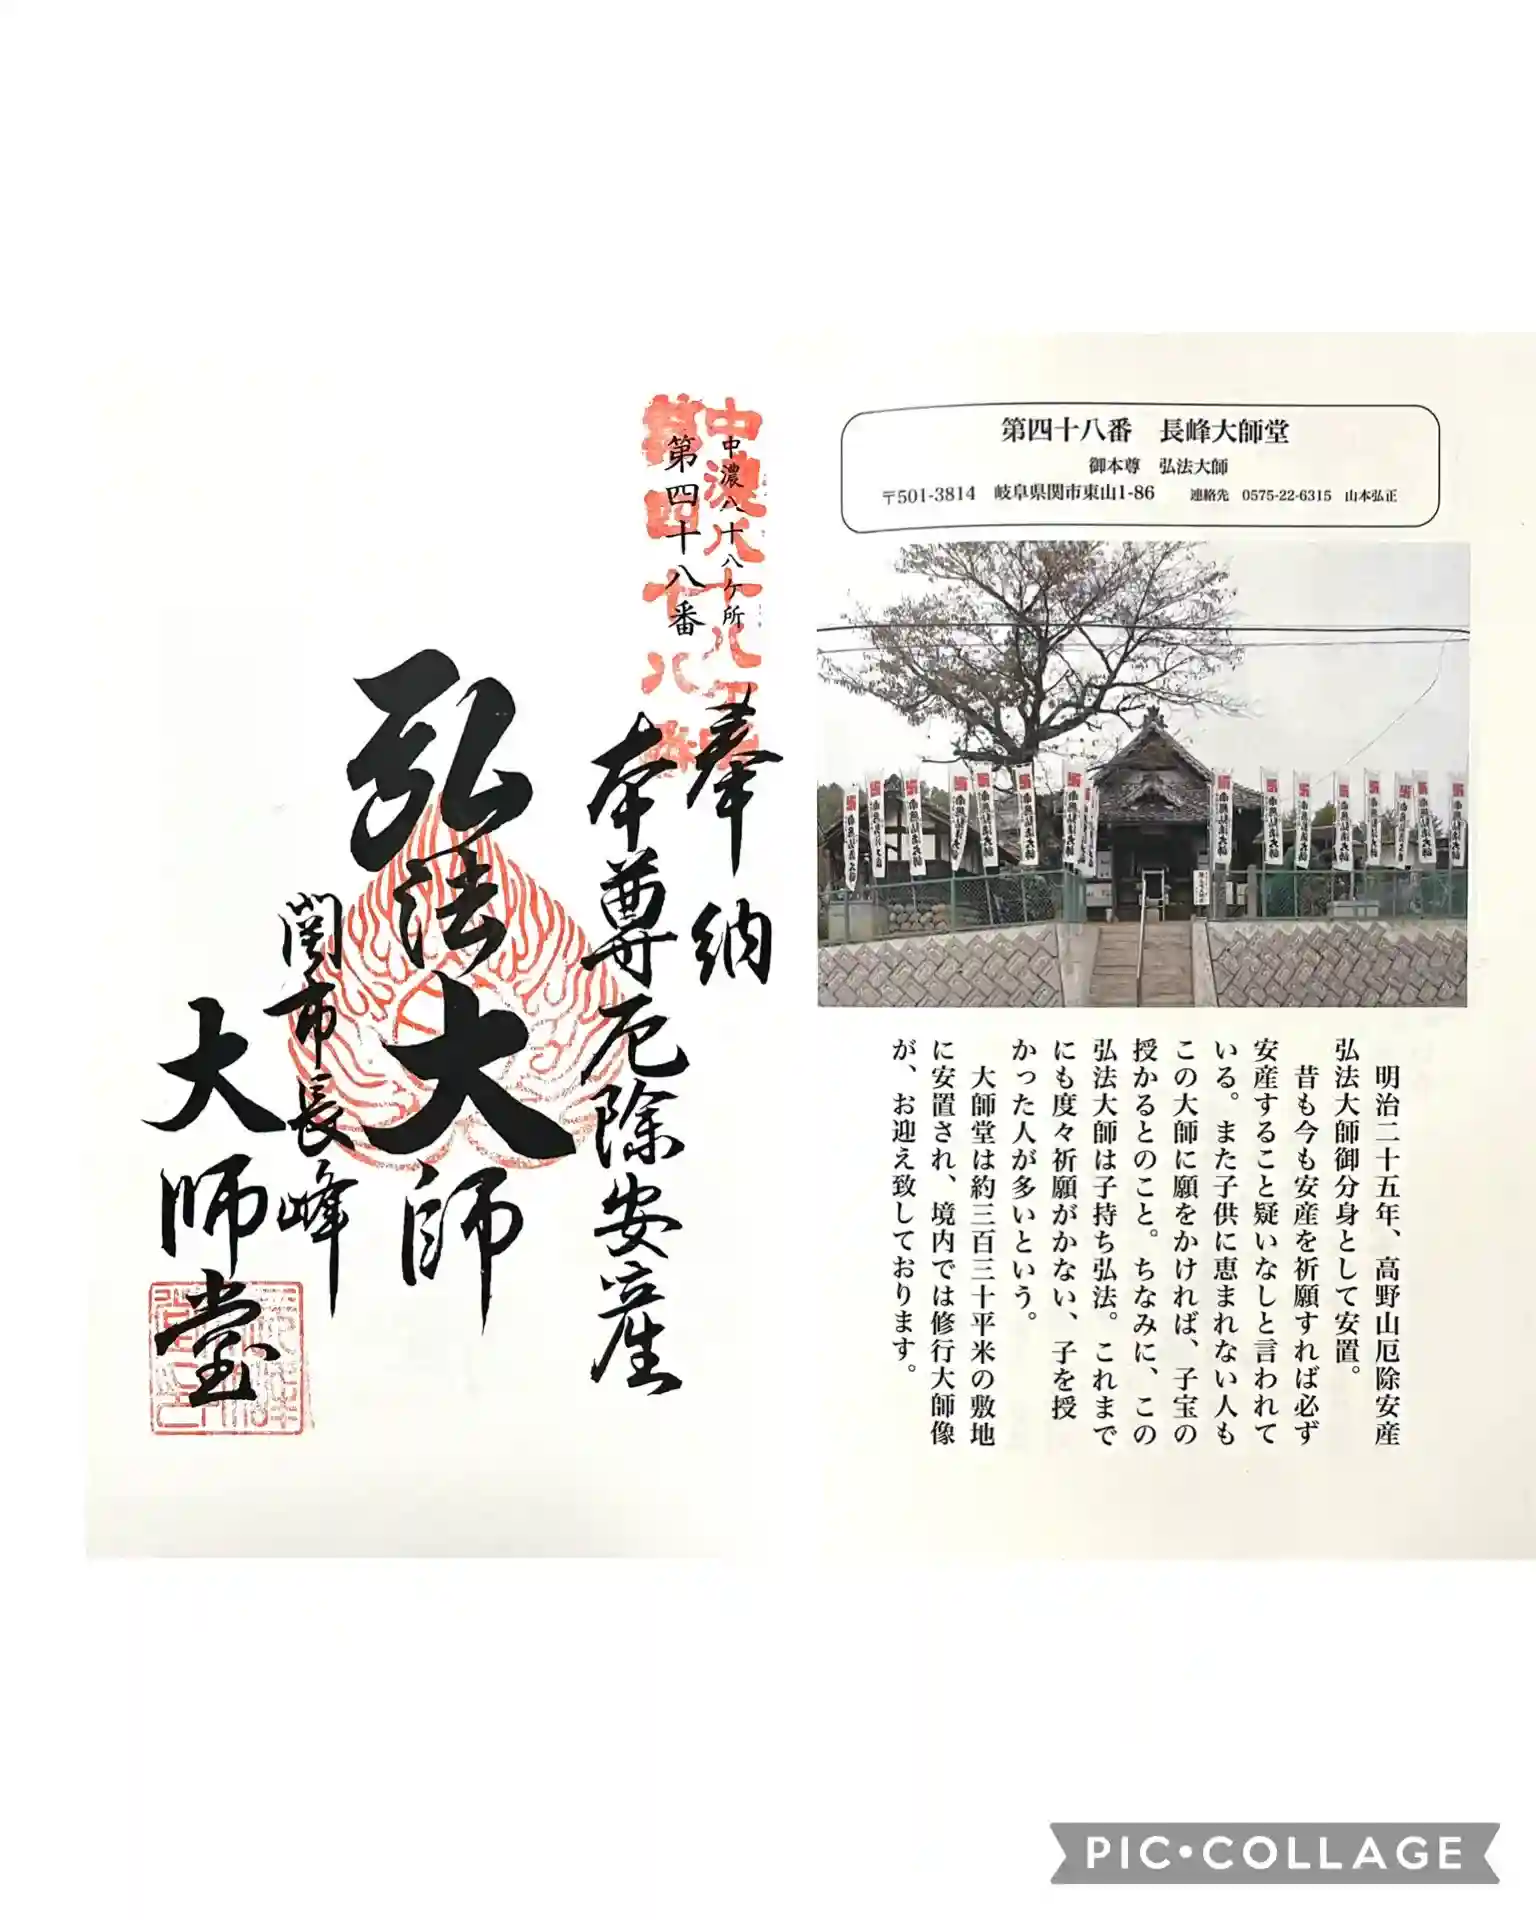 第四十八番　長峰大師堂
御本尊　弘法大師
〒501-3814　岐阜県関市東山1-86　連絡先　0575-22-6315　山本弘正
明治二十五年、高野山厄除安産
弘法大師御分身として安置。
昔も今も安産を祈願すれば必ず
安産すること疑いなしと言われて
いる。また子供に恵まれない人も
この大師に願をかければ、子宝の
授かるとのこと。ちなみに、この
弘法大師は子持ち弘法。これまで
にも度々祈願がかない、子を授
かった人が多いという。
大師堂は約三百三十平米の敷地
に安置され、境内では修行大師像
が、お迎え致しております。
中濃八十八ケ所
第四十八番
中濃八十八
第四十八番
奉納
本尊厄除安産
弘法大師
関市長峰
大師堂
南無弘法大師
PIC•COLLAGE